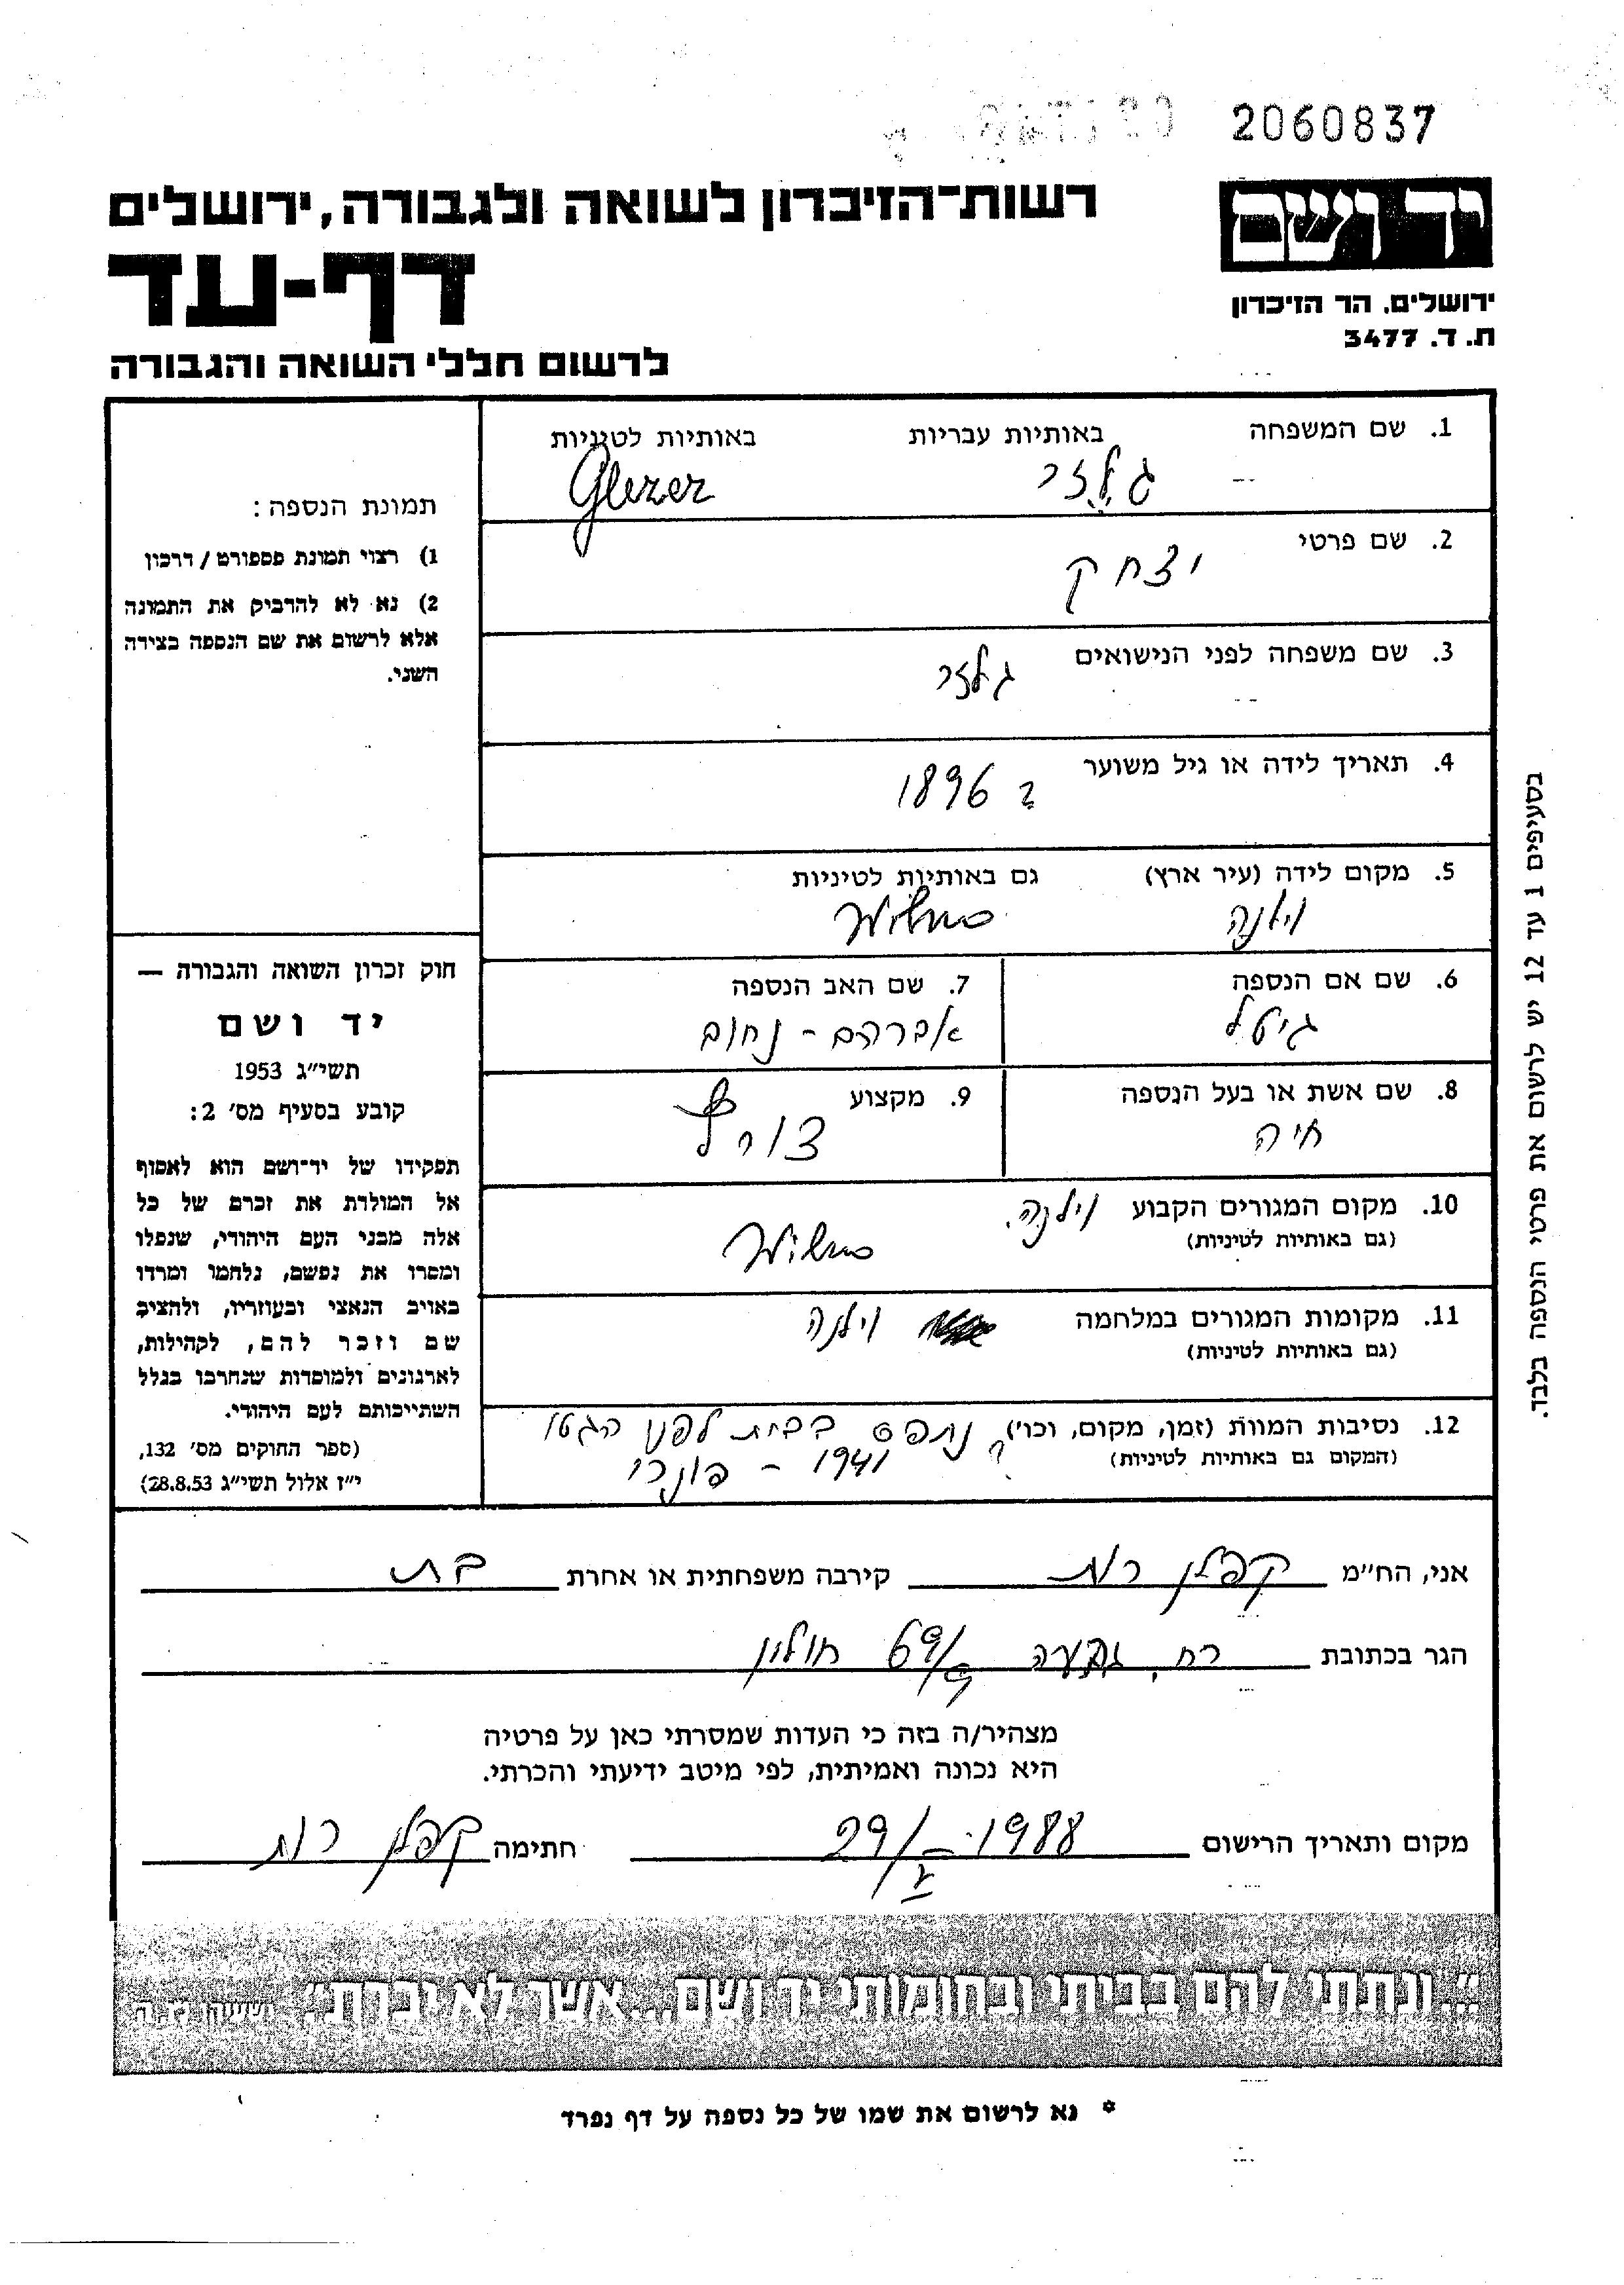 2060837
יד ושם
רשות־הזיכרון לשואה ולגבורה, ירושלים
דף-עד
ירושלים, הר הזיכרון
ת. ד. 3477
לרשום חללי השואה והגבורה
1. שם המשפחה באותיות עבריות באותיות לטיניות
גלזר Glezer
2. שם פרטי
יצחק
3. שם משפחה לפני הנישואים
גלזר
4. תאריך לידה או גיל משוער
? 1896
5. מקום לידה (עיר ארץ) גם באותיות לטיניות
וילנה Wilno
6. שם אם הנספה
גיטל
7. שם האב הנספה
אברהם - נחום
8. שם אשת או בעל הנספה
חיה
9. מקצוע
צורף
10. מקום המגורים הקבוע וילנה.
(גם באותיות לטיניות) Wilno
11. מקומות המגורים במלחמה וילנה
(גם באותיות לטיניות)
12. נסיבות המוות (זמן, מקום, וכו') נתפס בבית לפני הגטו
(המקום גם באותיות לטיניות) ? 1941 - פונרי
תמונת הנספה:
1) רצוי תמונת פספורט / דרכון
2) נא לא להדביק את התמונה
אלא לרשום את שם הנספה בצידה
השני.
חוק זכרון השואה והגבורה —
יד ושם
תשי״ג 1953
קובע בסעיף מס׳ 2:
תפקידו של יד־ושם הוא לאסוף
אל המולדת את זכרם של כל
אלה מבני העם היהודי, שנפלו
ומסרו את נפשם, נלחמו ומרדו
באויב הנאצי ובעוזריו, ולהציב
שם וזכר להם, לקהילות,
לארגונים ולמוסדות שנחרבו בגלל
השתייכותם לעם היהודי.
(ספר החוקים מס׳ 132,
י״ז אלול תשי״ג 28.8.53)
בסעיפים 1 עד 12 יש לרשום את פרטי הנספה בלבד.
אני, הח״מ קפלן רות קירבה משפחתית או אחרת בת
הגר בכתובת רח. גבעה 69/9 חולון
מצהיר/ה בזה כי העדות שמסרתי כאן על פרטיה
היא נכונה ואמיתית, לפי מיטב ידיעתי והכרתי.
מקום ותאריך הרישום 29/V.1988 חתימה קפלן רות
״...ונתתי להם בביתי ובחומותי יד ושם...אשר לא יכרת״. ישעיהו נו, ה
* נא לרשום את שמו של כל נספה על דף נפרד